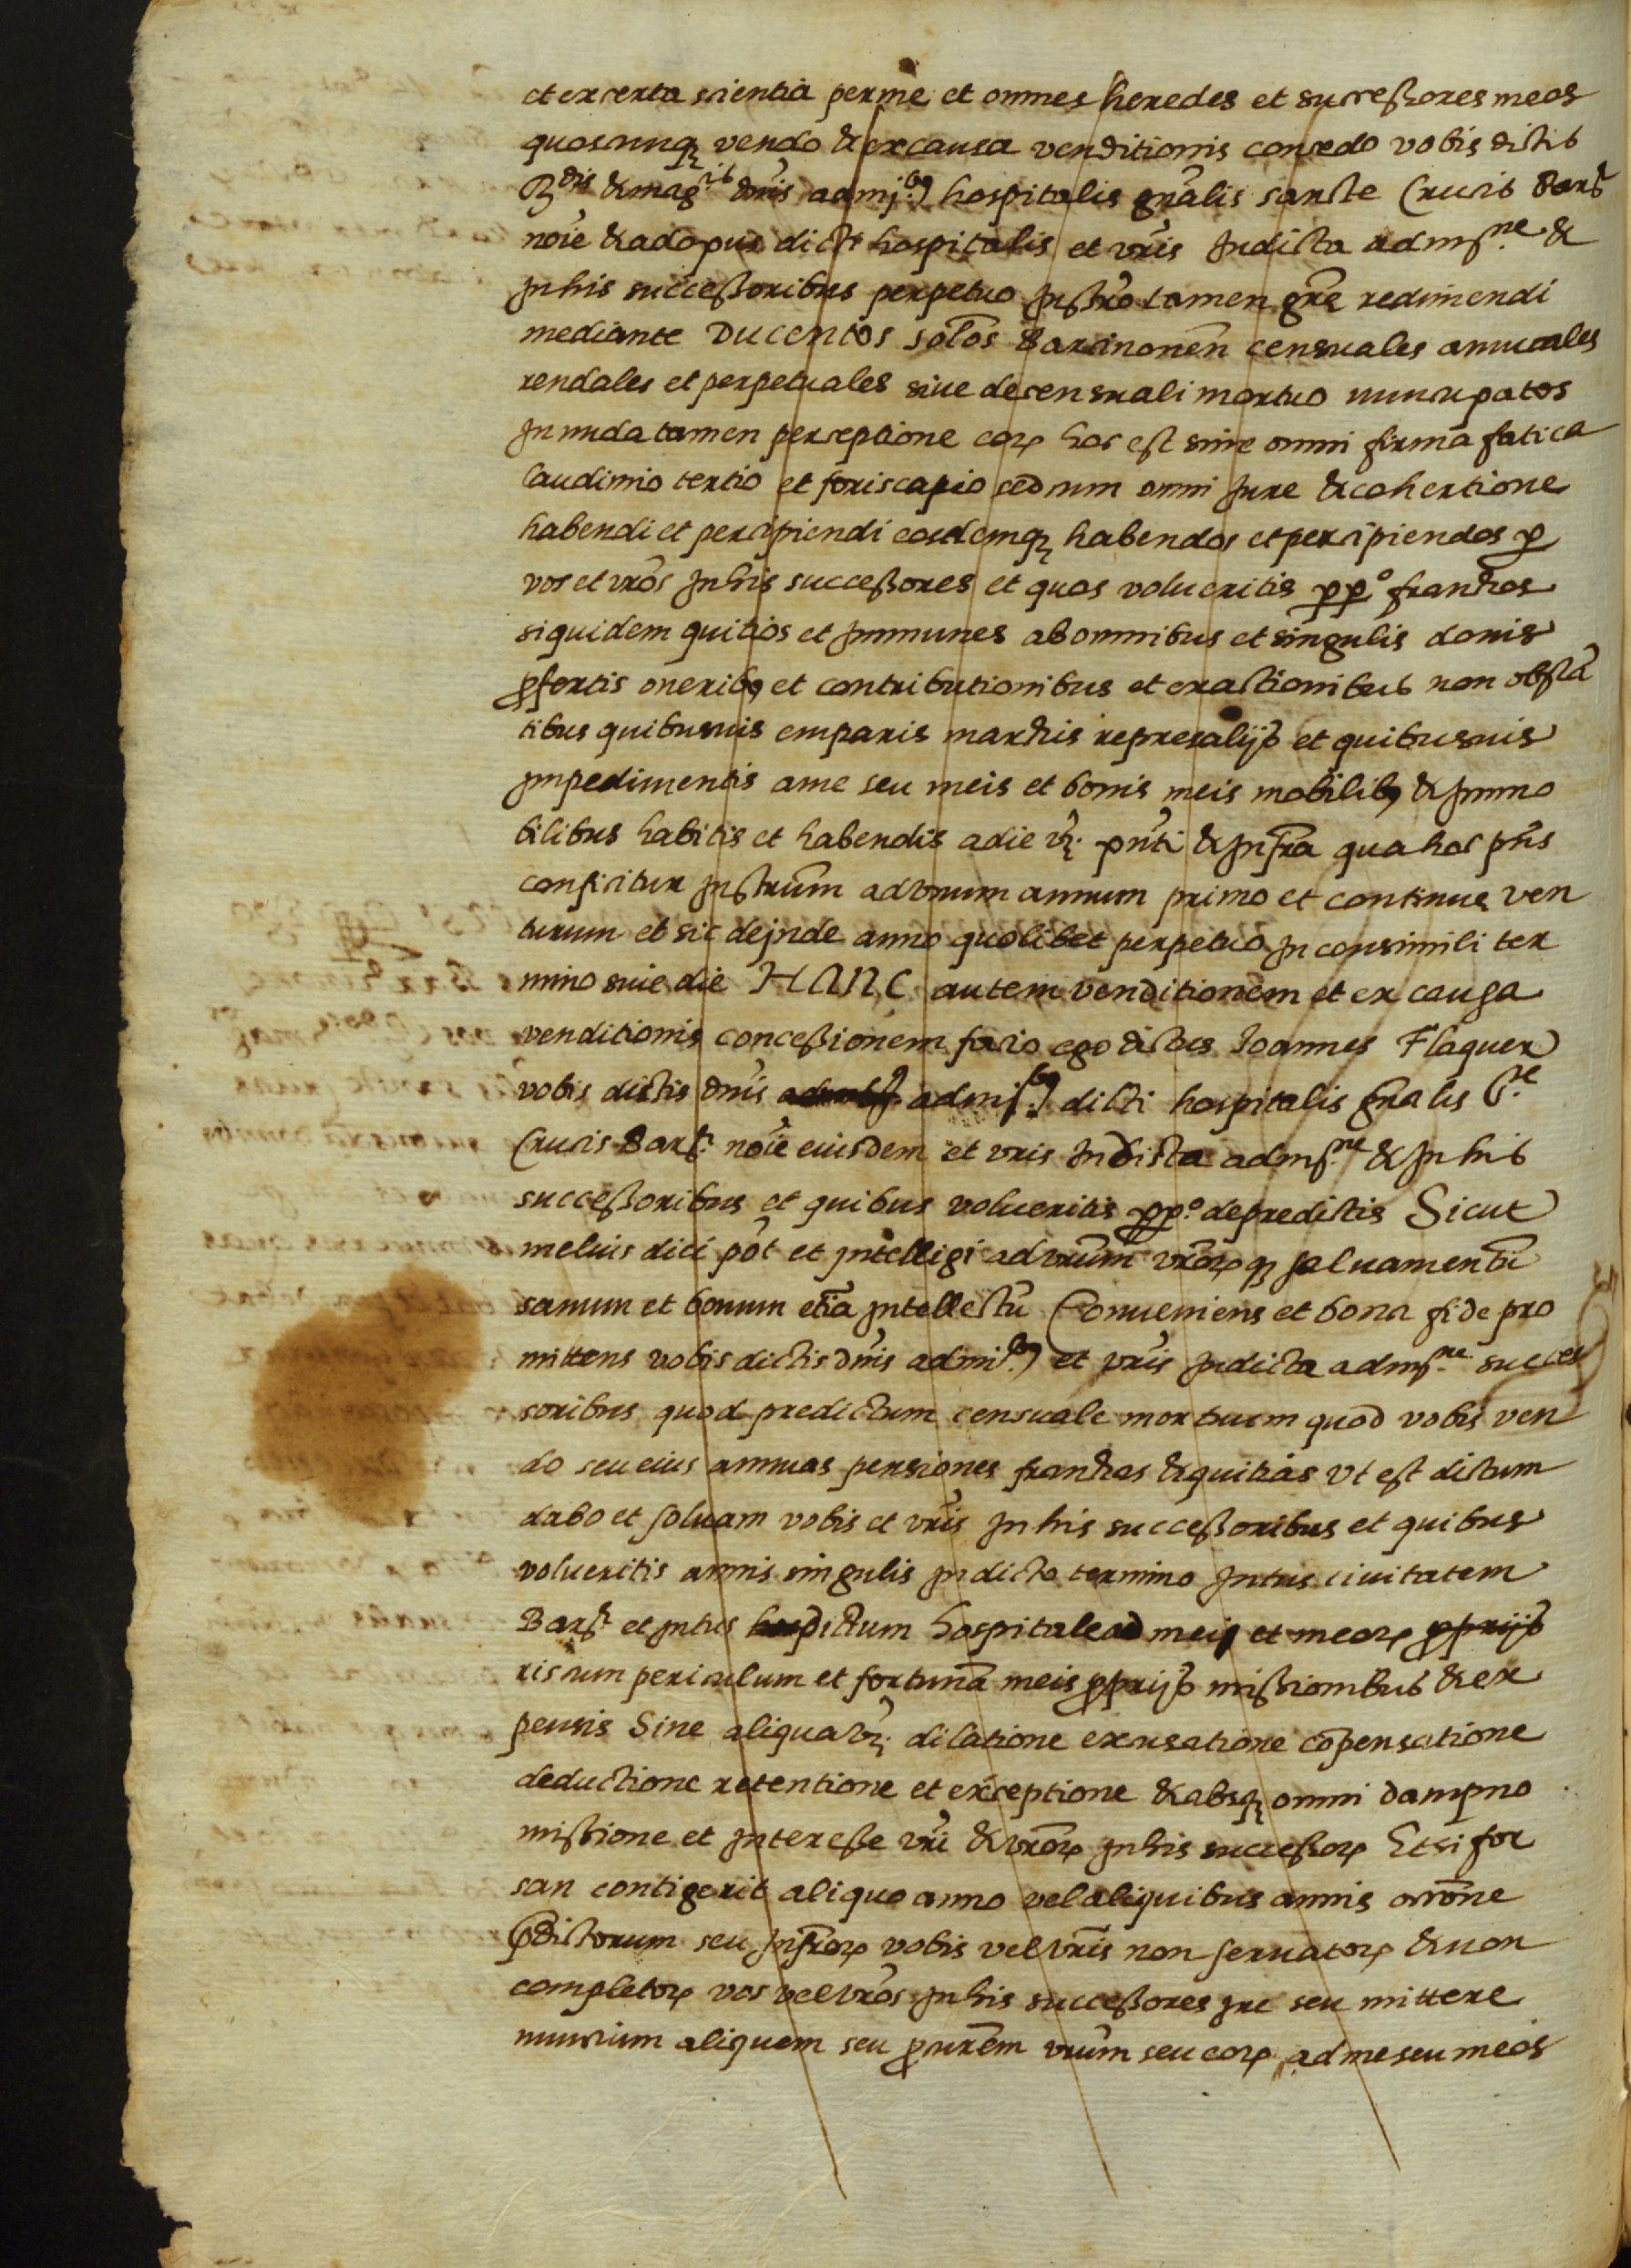 et ex certa scientia per me et omnes heredes et successores meos
quoscunq vendo & ex causa venditionis concedo vobis dictis
R.dis & mag.cis dnis admi.bus hospitalis gnalis sancte Crucis Barc
noie & ad opus dicti hospitalis et vris In dicta admj.ne &
In his successoribus perpetuo Instro tamen gre redimendi
mediante Ducentos solos Barcinonen censuales annuales
rendales et perpetuales siue de censuali mortuo nuncupatos
In nuda tamen perceptione eorp hoc est sine omni firma fatica
laudimio tertio et foriscapio sed cum omni Jure & cohertione
habendi et percipiendi eosdemq habendos et percipiendos p
vos et vros In his successores et quos volueritis ppo franchos
siquidem quitios et Immunes ab omnibus et singulis donis
pfertis oneribus et contributionibus et exactionibus non obsta
tibus quibusuis emparis marchis represalijs et quibusuis
Impedimentis a me seu meis et bonis meis mobilibus & Immo
bilibus habitis et habendis a die vz. pnti & Infra qua hoc pns
conficitur Instrum ad vnum annum primo et continue ven
turum et sic deinde anno quolibet perpetuo In consimili ter
mino siue die HANC autem venditionem et ex causa
venditionis concessionem facio ego dictus Joannes Flaquer
vobis dictis dnis admi.bus dicti hospitalis gnalis S.te
Crucis Barc. noie eiusdem et vris In dicta admj.ne & In his
successoribus et quibus volueritis ppo. de predictis Sicut
melius dici pot et Intelligi ad vrum vrorp q saluamentu
sanum et bonum etia Intellectu Conueniens et bona fide pro
mittens vobis dictis dnis admi.bus et vris In dicta admj.ne succes
soribus quod predictum censuale mortuum quod vobis ven
do seu eius annuas pensiones franchas & quitias vt est dictum
dabo et soluam vobis et vris In his successoribus et quibus
volueritis annis singulis In dicto termino Intus ciuitatem
Barc. et Intus dictum hospitale ad mei et meorp pprijs
riscum periculum et fortuna meis pprijs missionibus & ex
pensis Sine aliqua vz. dilatione excusatione copensatione
deductione retentione et exceptione & absq omni dampno
missione et Interesse vri & vrorp In his successorp Et si for
san contigerit aliquo anno vel aliquibus annis orrone
pdictorum seu Infrorp vobis vel vris non seruatorp & non
completorp vos vel vros In his successores Ire seu mittere
nuncium aliquem seu pcurem vrum seu eorp ad me seu meos